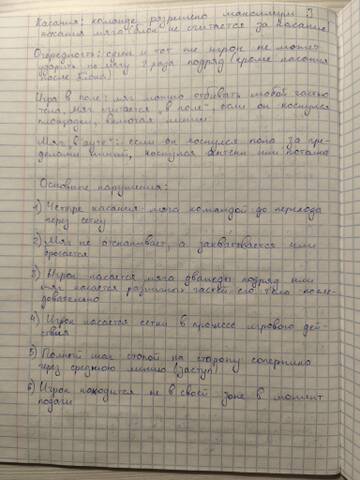 Касания: команде разрешено максимум 3
касания мяча (блок не считается за касание)
Очередность: один и тот же игрок не может
ударить по мячу 2 раза подряд (кроме касания
после блока)
Игра в поле: мяч можно отбивать любой частью
тела. Мяч считается "в поле", если он коснулся
площадки, включая линии
Мяч "в ауте": если он коснулся пола за пре-
делами линий, коснулся антенн или потолка
Основные нарушения:
1) Четыре касания мяча командой до перехода
через сетку
2) Мяч не отскакивает, а захватывается или
бросается
3) Игрок касается мяча дважды подряд или
мяч касается различных частей его тела после-
довательно
4) Игрок касается сетки в процессе игрового дей
ствия
5) Полный шаг стопой на сторону соперника
через среднюю линию (заступ)
6) Игрок находится не в своей зоне в момент
подачи